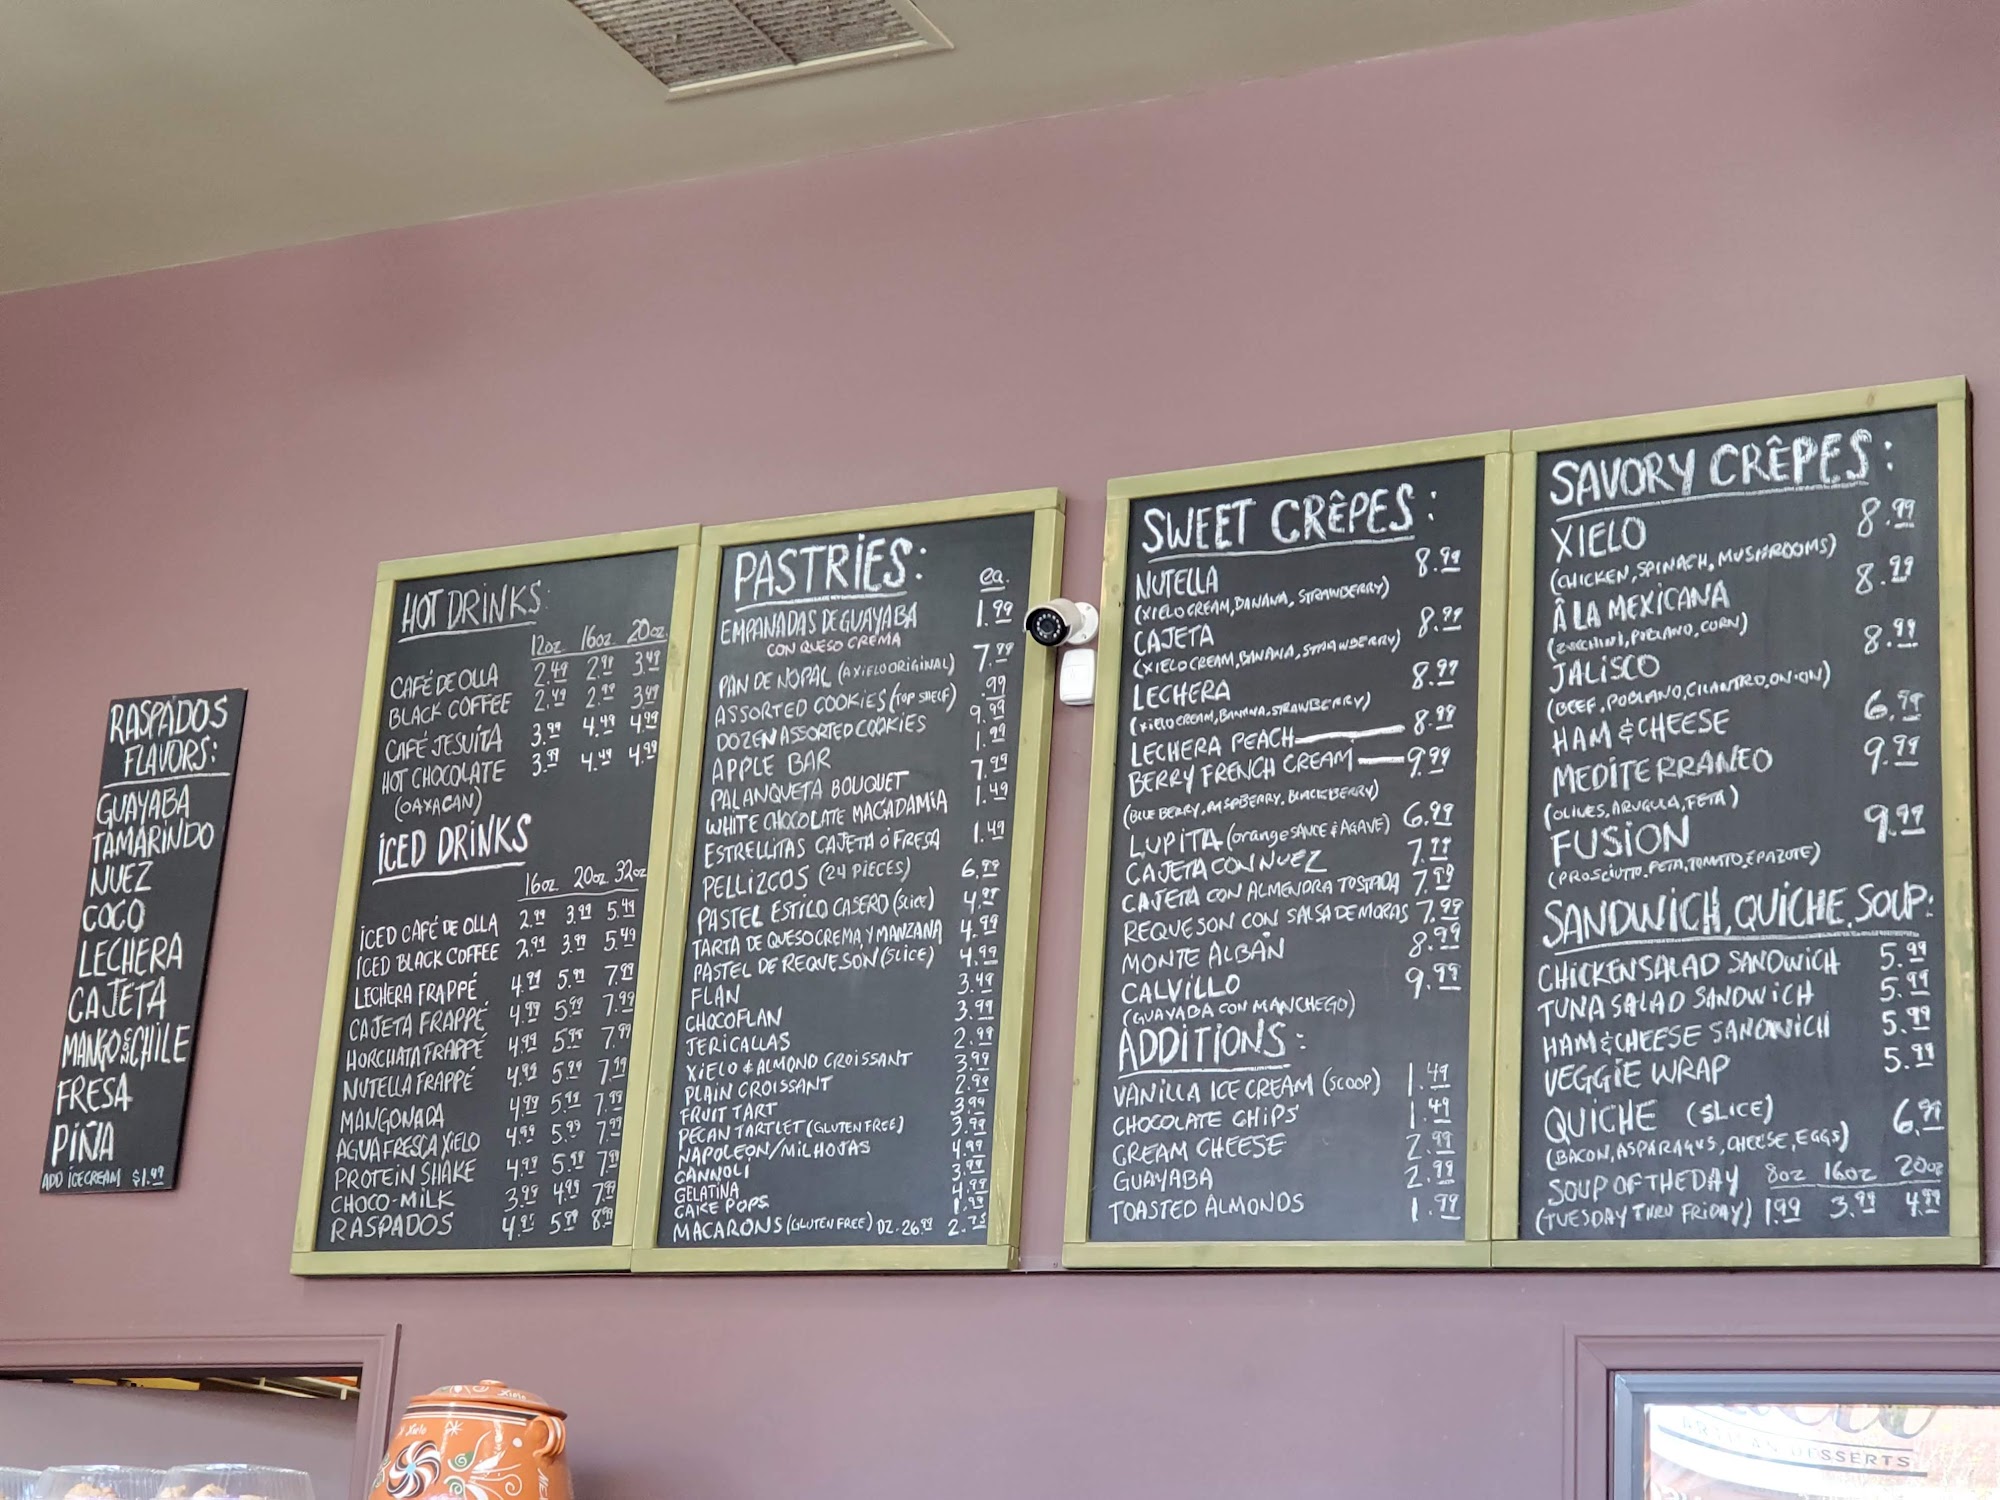 RASPADOS
FLAVORS:
GUAYABA
TAMARINDO
NUEZ
COCO
LECHERA
CAJETA
MANGO CON CHILE
FRESA
PIÑA
ADD ICECREAM $1.49
HOT DRINKS:
12oz. 16oz. 20oz.
CAFÉ DE OLLA 2.49 2.99 3.49
BLACK COFFEE 2.49 2.99 3.49
CAFÉ JESUITA 3.99 4.49 4.99
HOT CHOCOLATE 3.99 4.49 4.99
(OAXACAN)
ICED DRINKS
16oz 20oz 32oz
ICED CAFÉ DE OLLA 2.99 3.99 5.49
ICED BLACK COFFEE 2.99 3.99 5.49
LECHERA FRAPPÉ 4.99 5.99 7.99
CAJETA FRAPPÉ 4.99 5.99 7.99
HORCHATA FRAPPÉ 4.99 5.99 7.99
NUTELLA FRAPPÉ 4.99 5.99 7.99
MANGONADA 4.99 5.99 7.99
AGUA FRESCA XIELO 4.99 5.99 7.99
PROTEIN SHAKE 4.99 5.99 7.99
CHOCO-MILK 3.99 4.99 7.99
RASPADOS 4.99 5.99 8.99
PASTRIES:
ea.
EMPANADAS DE GUAYABA 1.99
CON QUESO CREMA
PAN DE NOPAL (A XIELO ORIGINAL) 7.99
ASSORTED COOKIES (TOP SHELF) .99
DOZEN ASSORTED COOKIES 9.99
APPLE BAR 1.99
PALANQUETA BOUQUET 7.99
WHITE CHOCOLATE MACADAMIA 1.49
ESTRELLITAS CAJETA Ó FRESA 1.49
PELLIZCOS (24 PIECES) 6.99
PASTEL ESTILO CASERO (slice) 4.99
TARTA DE QUESO CREMA Y MANZANA 4.99
PASTEL DE REQUESON (SLICE) 4.99
FLAN 3.49
CHOCOFLAN 3.99
JERICALLAS 2.99
XIELO & ALMOND CROISSANT 3.99
PLAIN CROISSANT 2.99
FRUIT TART 3.99
PECAN TARTLET (GLUTEN FREE) 3.99
NAPOLEON/MILHOJAS 4.99
CANNOLI 3.99
GELATINA 4.99
CAKE POPS 1.99
MACARONS (GLUTEN FREE) DZ. 26.99 2.75
SWEET CRÊPES:
NUTELLA 8.99
(XIELO CREAM, BANANA, STRAWBERRY)
CAJETA 8.99
(XIELO CREAM, BANANA, STRAWBERRY)
LECHERA 8.99
(XIELO CREAM, BANANA, STRAWBERRY)
LECHERA PEACH 8.99
BERRY FRENCH CREAM 9.99
(BLUEBERRY, RASPBERRY, BLACKBERRY)
LUPITA (orange SAUCE & AGAVE) 6.99
CAJETA CON NUEZ 7.99
CAJETA CON ALMENDRA TOSTADA 7.99
REQUESON CON SALSA DE MORAS 7.99
MONTE ALBÁN 8.99
CALVILLO 9.99
(GUAYABA CON MANCHEGO)
ADDITIONS:
VANILLA ICE CREAM (SCOOP) 1.49
CHOCOLATE CHIPS 1.49
CREAM CHEESE 2.99
GUAYABA 2.99
TOASTED ALMONDS 1.99
SAVORY CRÊPES:
XIELO 8.99
(CHICKEN, SPINACH, MUSHROOMS)
Â LA MEXICANA 8.99
(ZUCCHINI, POBLANO, CORN)
JALISCO 8.99
(BEEF, POBLANO, CILANTRO, ONION)
HAM & CHEESE 6.99
MEDITERRANEO 9.99
(OLIVES, ARUGULA, FETA)
FUSION 9.99
(PROSCIUTTO, FETA, TOMATO, EPAZOTE)
SANDWICH, QUICHE, SOUP:
CHICKEN SALAD SANDWICH 5.99
TUNA SALAD SANDWICH 5.99
HAM & CHEESE SANDWICH 5.99
VEGGIE WRAP 5.99
QUICHE (SLICE) 6.99
(BACON, ASPARAGUS, CHEESE, EGGS)
SOUP OF THE DAY 8oz 16oz 20oz
(TUESDAY THRU FRIDAY) 1.99 3.99 4.99
Xielo
ARTISAN DESSERTS